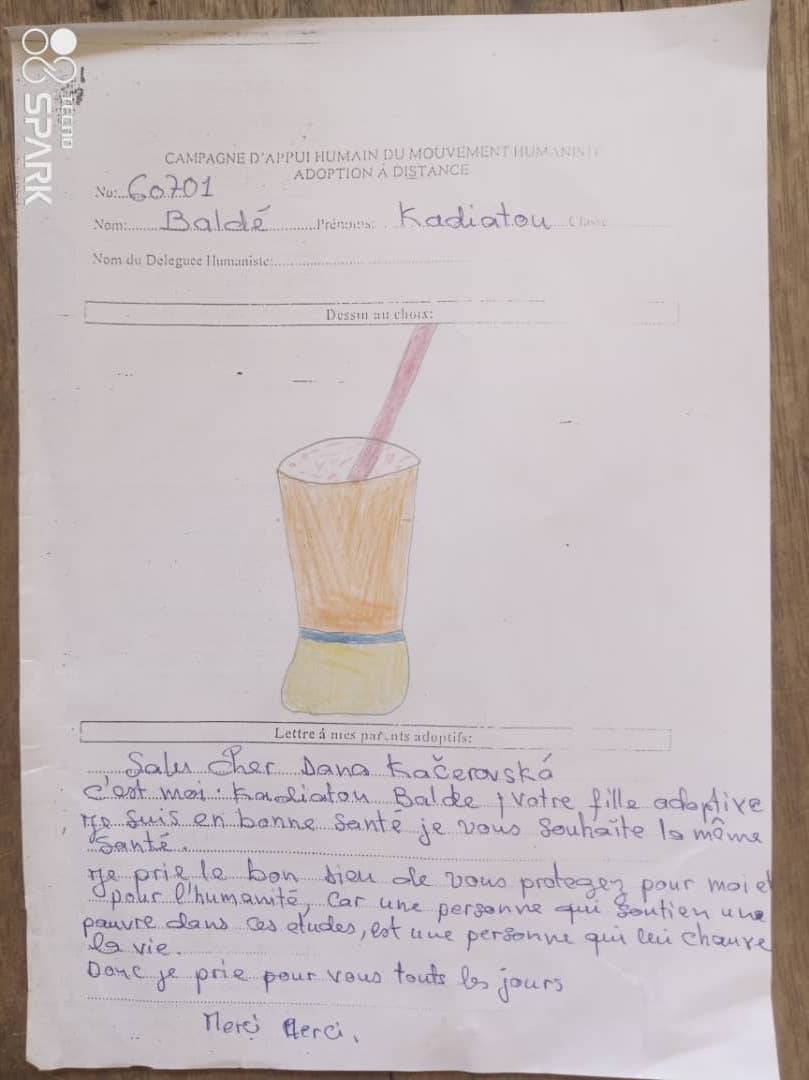 TECNO
SPARK
CAMPAGNE D'APPUI HUMAIN DU MOUVEMENT HUMANISTE
ADOPTION Á DISTANCE
No:...60701
Nom:......Baldé.........Prénoms: Kadiatou Classe
Nom du Deleguee Humaniste:..............................
Dessin au choix:
Lettre á mes parents adoptifs:
Salu Cher Dana Kačerovská
C'est moi. Kadiatou Balde ; votre fille adoptive
Je suis en bonne santé je vous souhaite la même
Santé.
Je prie le bon dieu de vous protegez pour moi et
pour l'humanité, Car une personne qui soutien une
pauvre dans ces etudes, est une personne qui lui chauve
la vie.
Donc je prie pour vous touts les jours
Merci Merci.